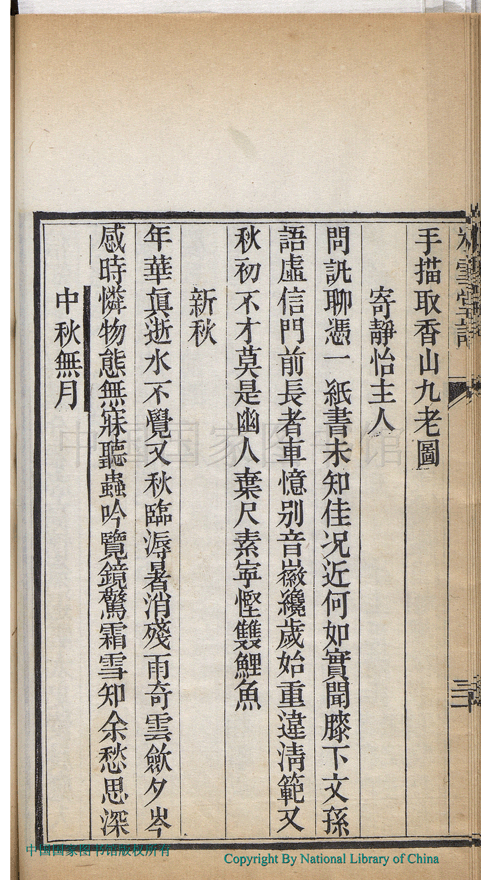 手描取香山九老圖
寄靜怡主人
問訊聊憑一紙書未知佳况近何如實聞膝下文孫
語虛信門前長者車憶别音徽纔歲始重違淸範又
秋初不才莫是幽人棄尺素寧慳雙鯉魚
新秋
年華眞逝水不覺又秋臨溽暑消殘雨奇雲斂夕岑
感時憐物態無寐聽蟲吟覽鏡驚霜雪知余愁思深
中秋無月
中国国家图书馆
中国国家图书馆版权所有
Copyright By National Library of China